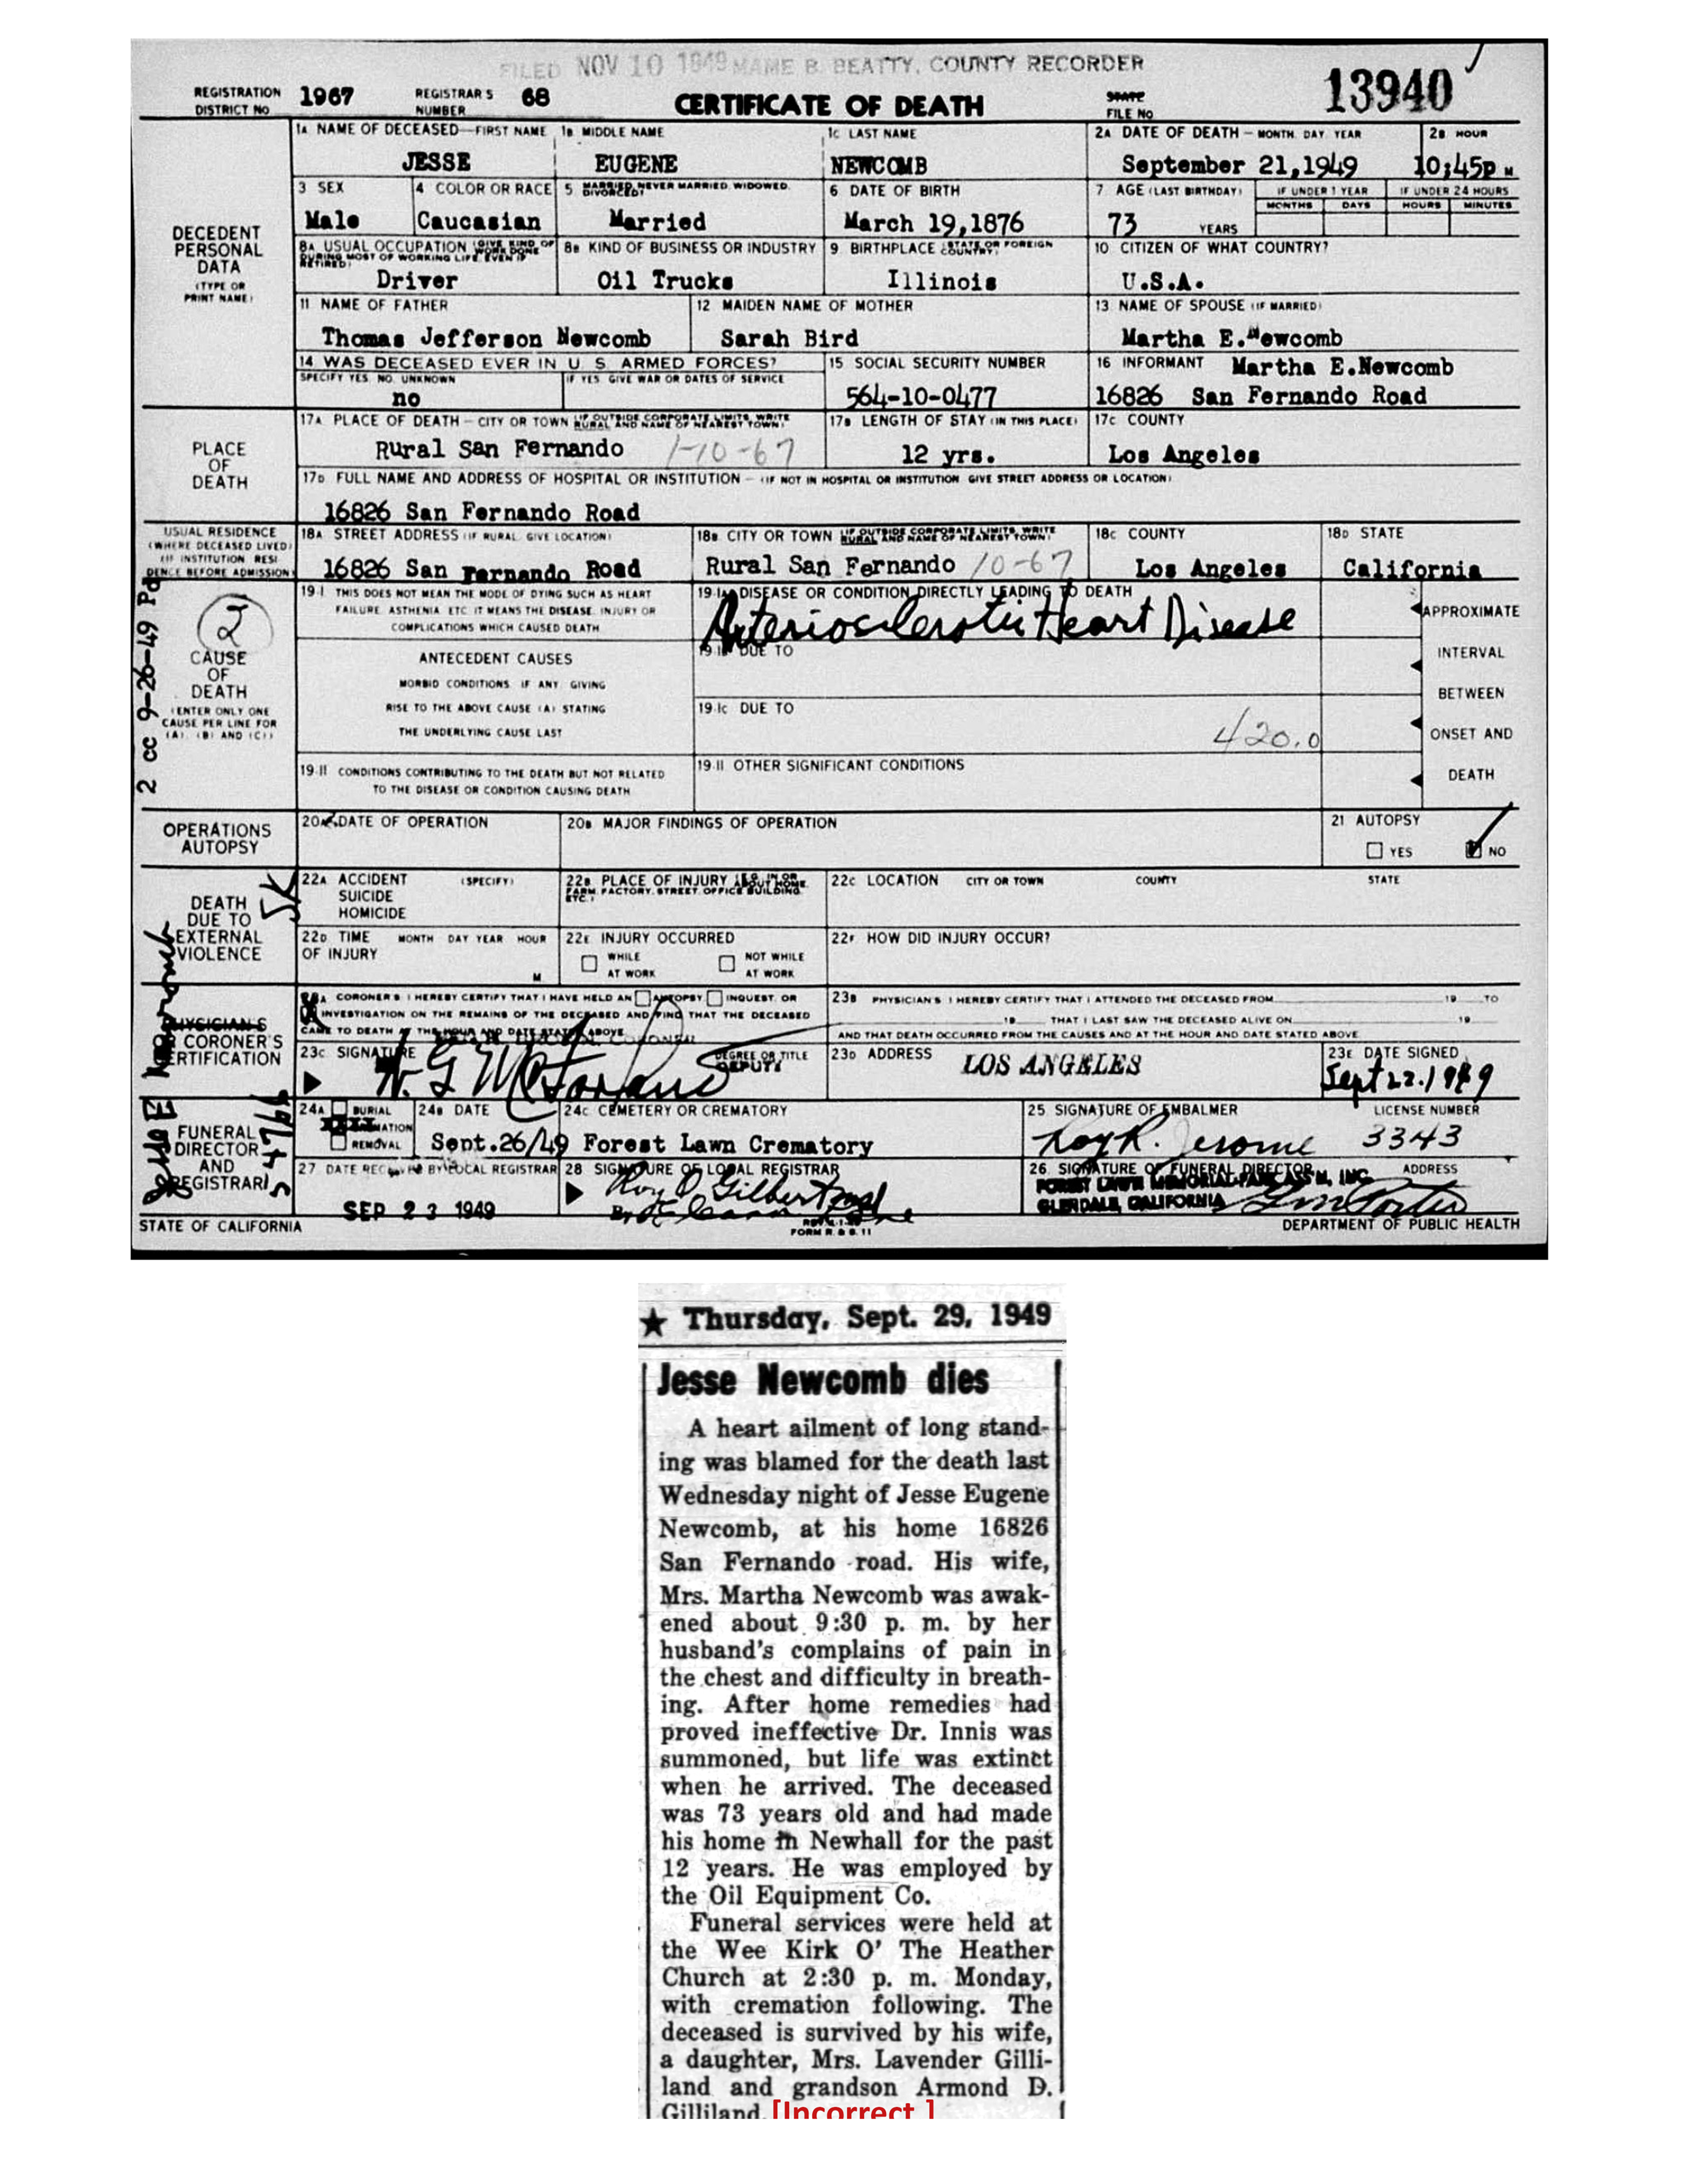 FILED NOV 10 1949 MAME B. BEATTY, COUNTY RECORDER
REGISTRATION DISTRICT NO 1967 REGISTRAR'S NUMBER 68 CERTIFICATE OF DEATH STATE FILE NO 13940
DECEDENT PERSONAL DATA (TYPE OR PRINT NAME)
1A NAME OF DECEASED—FIRST NAME 1B MIDDLE NAME 1C LAST NAME 2A DATE OF DEATH — MONTH. DAY. YEAR 2B HOUR
JESSE EUGENE NEWCOMB September 21,1949 10;45p M
3 SEX 4 COLOR OR RACE 5 MARRIED, NEVER MARRIED, WIDOWED, DIVORCED 6 DATE OF BIRTH 7 AGE (LAST BIRTHDAY) IF UNDER 1 YEAR IF UNDER 24 HOURS
MONTHS DAYS HOURS MINUTES
Male Caucasian Married March 19,1876 73 YEARS
8A USUAL OCCUPATION (GIVE KIND OF WORK DONE DURING MOST OF WORKING LIFE, EVEN IF RETIRED) 8B KIND OF BUSINESS OR INDUSTRY 9 BIRTHPLACE (STATE OR FOREIGN COUNTRY) 10 CITIZEN OF WHAT COUNTRY?
Driver Oil Trucks Illinois U.S.A.
11 NAME OF FATHER 12 MAIDEN NAME OF MOTHER 13 NAME OF SPOUSE (IF MARRIED)
Thomas Jefferson Newcomb Sarah Bird Martha E.Newcomb
14 WAS DECEASED EVER IN U. S. ARMED FORCES? 15 SOCIAL SECURITY NUMBER 16 INFORMANT Martha E.Newcomb
SPECIFY YES, NO, UNKNOWN IF YES, GIVE WAR OR DATES OF SERVICE
no 564-10-0477 16826 San Fernando Road
PLACE OF DEATH
17A PLACE OF DEATH — CITY OR TOWN (IF OUTSIDE CORPORATE LIMITS, WRITE RURAL AND NAME OF NEAREST TOWN) 17B LENGTH OF STAY (IN THIS PLACE) 17C COUNTY
Rural San Fernando 1-10-67 12 yrs. Los Angeles
17D FULL NAME AND ADDRESS OF HOSPITAL OR INSTITUTION — (IF NOT IN HOSPITAL OR INSTITUTION, GIVE STREET ADDRESS OR LOCATION)
16826 San Fernando Road
USUAL RESIDENCE (WHERE DECEASED LIVED) (IF INSTITUTION RESIDENCE BEFORE ADMISSION)
18A STREET ADDRESS (IF RURAL, GIVE LOCATION) 18B CITY OR TOWN (IF OUTSIDE CORPORATE LIMITS, WRITE RURAL AND NAME OF NEAREST TOWN) 18C COUNTY 18D STATE
16826 San Fernando Road Rural San Fernando 10-67 Los Angeles California
2 cc 9-26-49 Pd
2
CAUSE OF DEATH (ENTER ONLY ONE CAUSE PER LINE FOR (A), (B) AND (C))
19-I THIS DOES NOT MEAN THE MODE OF DYING SUCH AS HEART FAILURE, ASTHENIA, ETC. IT MEANS THE DISEASE, INJURY OR COMPLICATIONS WHICH CAUSED DEATH
19-IA DISEASE OR CONDITION DIRECTLY LEADING TO DEATH
Arteriosclerotic Heart Disease
ANTECEDENT CAUSES
MORBID CONDITIONS, IF ANY, GIVING
RISE TO THE ABOVE CAUSE (A) STATING
THE UNDERLYING CAUSE LAST
19-IB DUE TO
19-IC DUE TO
420.0
APPROXIMATE
INTERVAL
BETWEEN
ONSET AND
DEATH
19-II CONDITIONS CONTRIBUTING TO THE DEATH BUT NOT RELATED TO THE DISEASE OR CONDITION CAUSING DEATH
19-II OTHER SIGNIFICANT CONDITIONS
OPERATIONS AUTOPSY
20A DATE OF OPERATION 20B MAJOR FINDINGS OF OPERATION 21 AUTOPSY
YES NO
DEATH DUE TO EXTERNAL VIOLENCE
22A ACCIDENT SUICIDE HOMICIDE (SPECIFY) 22B PLACE OF INJURY (E.G., IN OR ABOUT HOME, FARM, FACTORY, STREET, OFFICE BUILDING, ETC.) 22C LOCATION CITY OR TOWN COUNTY STATE
22D TIME OF INJURY MONTH DAY YEAR HOUR M 22E INJURY OCCURRED WHILE AT WORK NOT WHILE AT WORK 22F HOW DID INJURY OCCUR?
PHYSICIAN'S CORONER'S CERTIFICATION
23A CORONER'S: I HEREBY CERTIFY THAT I HAVE HELD AN AUTOPSY, INQUEST, OR INVESTIGATION ON THE REMAINS OF THE DECEASED AND FIND THAT THE DECEASED CAME TO DEATH AT THE HOUR AND DATE STATED ABOVE
23B PHYSICIAN'S: I HEREBY CERTIFY THAT I ATTENDED THE DECEASED FROM 19 TO
19 THAT I LAST SAW THE DECEASED ALIVE ON 19
AND THAT DEATH OCCURRED FROM THE CAUSES AND AT THE HOUR AND DATE STATED ABOVE
CORONER
23C SIGNATURE DEGREE OR TITLE DEPUTY 23D ADDRESS LOS ANGELES 23E DATE SIGNED Sept 22. 1949
FUNERAL DIRECTOR AND REGISTRAR
24A BURIAL CREMATION REMOVAL 24B DATE 24C CEMETERY OR CREMATORY 25 SIGNATURE OF EMBALMER LICENSE NUMBER
Sept.26/49 Forest Lawn Crematory Roy R. Jerome 3343
27 DATE RECEIVED BY LOCAL REGISTRAR 28 SIGNATURE OF LOCAL REGISTRAR 26 SIGNATURE OF FUNERAL DIRECTOR ADDRESS
SEP 23 1949 Roy O. Gilbert FOREST LAWN MEMORIAL-PARK ASS'N, INC.
GLENDALE, CALIFORNIA
STATE OF CALIFORNIA FORM R. & S. 11 DEPARTMENT OF PUBLIC HEALTH
★ Thursday, Sept. 29, 1949
Jesse Newcomb dies
A heart ailment of long stand-
ing was blamed for the death last
Wednesday night of Jesse Eugene
Newcomb, at his home 16826
San Fernando road. His wife,
Mrs. Martha Newcomb was awak-
ened about 9:30 p. m. by her
husband's complains of pain in
the chest and difficulty in breath-
ing. After home remedies had
proved ineffective Dr. Innis was
summoned, but life was extinct
when he arrived. The deceased
was 73 years old and had made
his home in Newhall for the past
12 years. He was employed by
the Oil Equipment Co.
Funeral services were held at
the Wee Kirk O' The Heather
Church at 2:30 p. m. Monday,
with cremation following. The
deceased is survived by his wife,
a daughter, Mrs. Lavender Gilli-
land and grandson Armond D.
Gilliland. [Incorrect ]